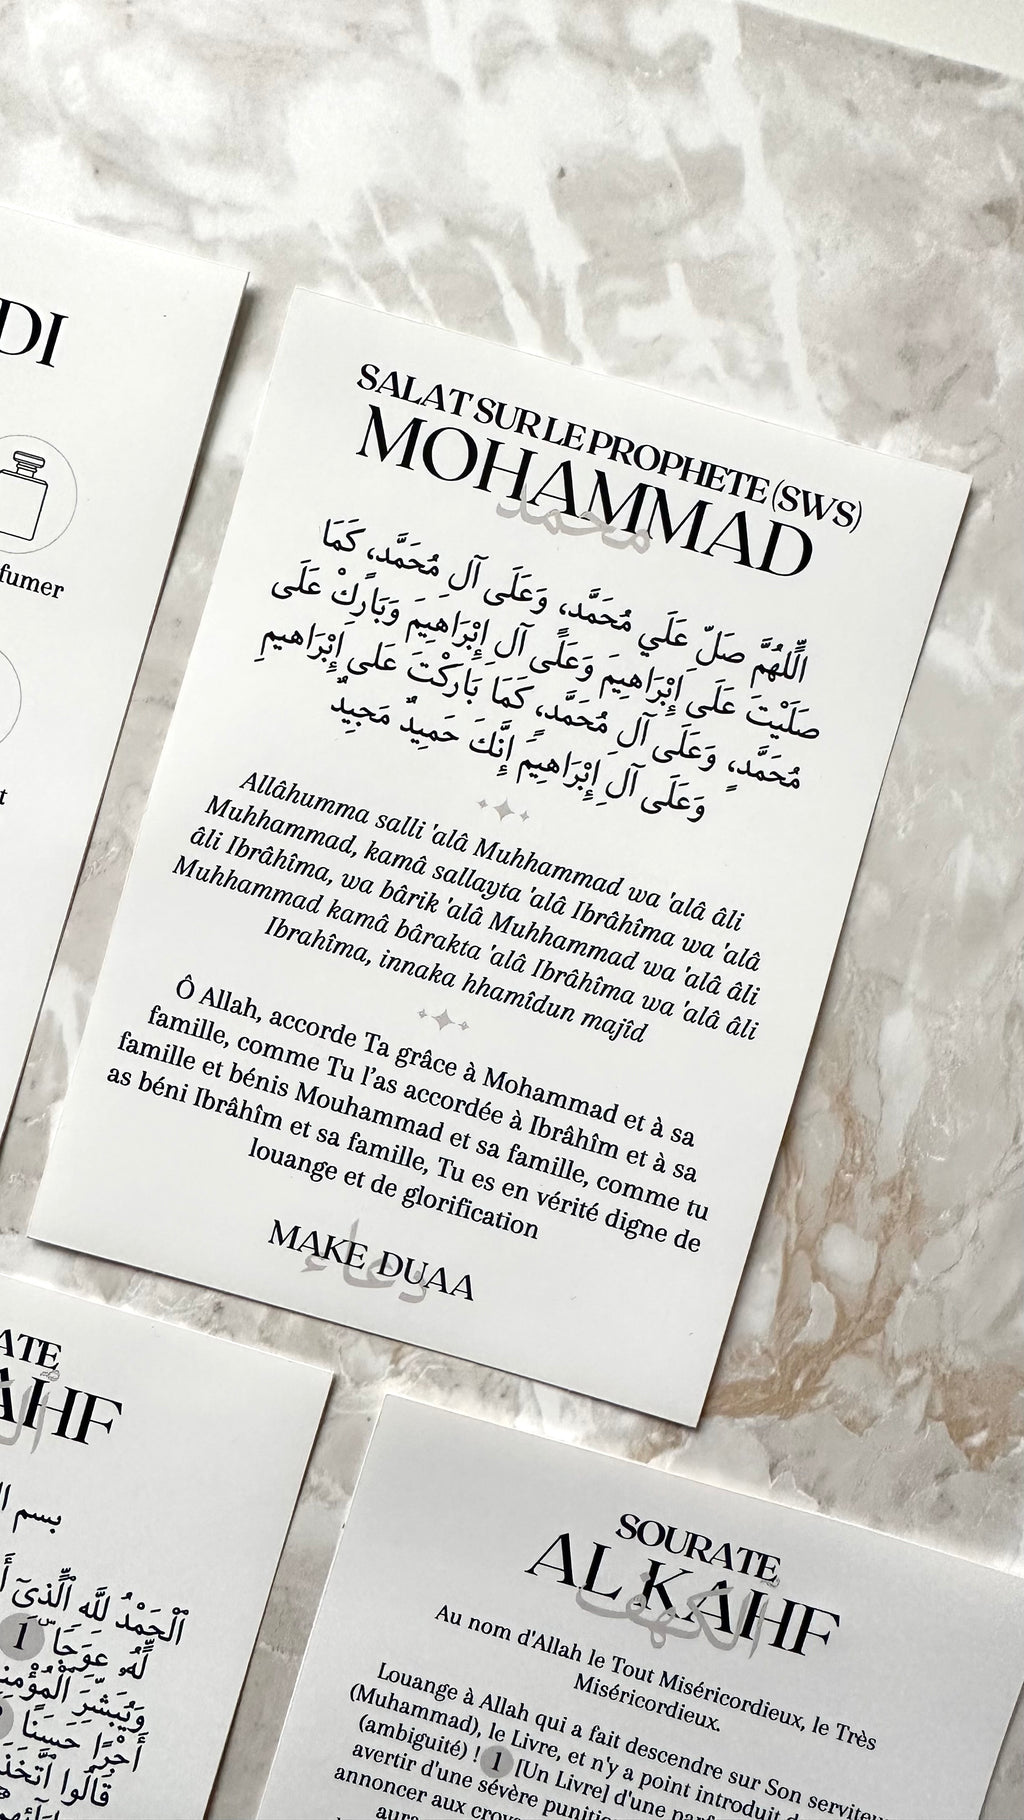 DI
fumer
t
SALAT SUR LE PROPHETE (SWS)
MOHAMMAD
محمد
اللَّهُمَّ صَلِّ عَلَي مُحَمَّد، وَعَلَى آلِ مُحَمَّد، كَمَا
صَلَيْتَ عَلَى إِبْرَاهِيمَ وَعَلَى آلِ إِبْرَاهِيمَ وَبَارِكْ عَلَى
مُحَمَّدٍ، وَعَلَى آلِ مُحَمَّدٍ، كَمَا بَارَكْتَ عَلى إِبْرَاهيمِ
وَعَلَى آلِ إِبْرَاهِيمَ إِنَّكَ حَمِيدٌ مَجِيدٌ
Allâhumma salli 'alâ Muhhammad wa 'alâ âli
Muhhammad, kamâ sallayta 'alâ Ibrâhîma wa 'alâ
âli Ibrâhîma, wa bârik 'alâ Muhhammad wa 'alâ âli
Muhhammad kamâ bârakta 'alâ Ibrâhîma wa 'alâ âli
Ibrahîma, innaka hhamîdun majîd
Ô Allah, accorde Ta grâce à Mohammad et à sa
famille, comme Tu l'as accordée à Ibrâhîm et à sa
famille et bénis Mouhammad et sa famille, comme tu
as béni Ibrâhîm et sa famille, Tu es en vérité digne de
louange et de glorification
MAKE DUAA
دعاء
ATE
AHF
بسم
ٱلْحَمْدُ لِلَّهِ ٱلَّذِىٓ
لَّهُۥ عِوَجَا 1
وَيُبَشِّرَ
أَجْرًا حَسَنًا
قَالُوا ٱتَّخَذَ
SOURATE
AL KAHF
الكهف
Au nom d'Allah le Tout Miséricordieux, le Très
Miséricordieux.
Louange à Allah qui a fait descendre sur Son serviteur
(Muhammad), le Livre, et n'y a point introduit d
(ambiguïté) ! 1 [Un Livre] d'une parf
avertir d'une sévère punitio
annoncer aux croy
aura